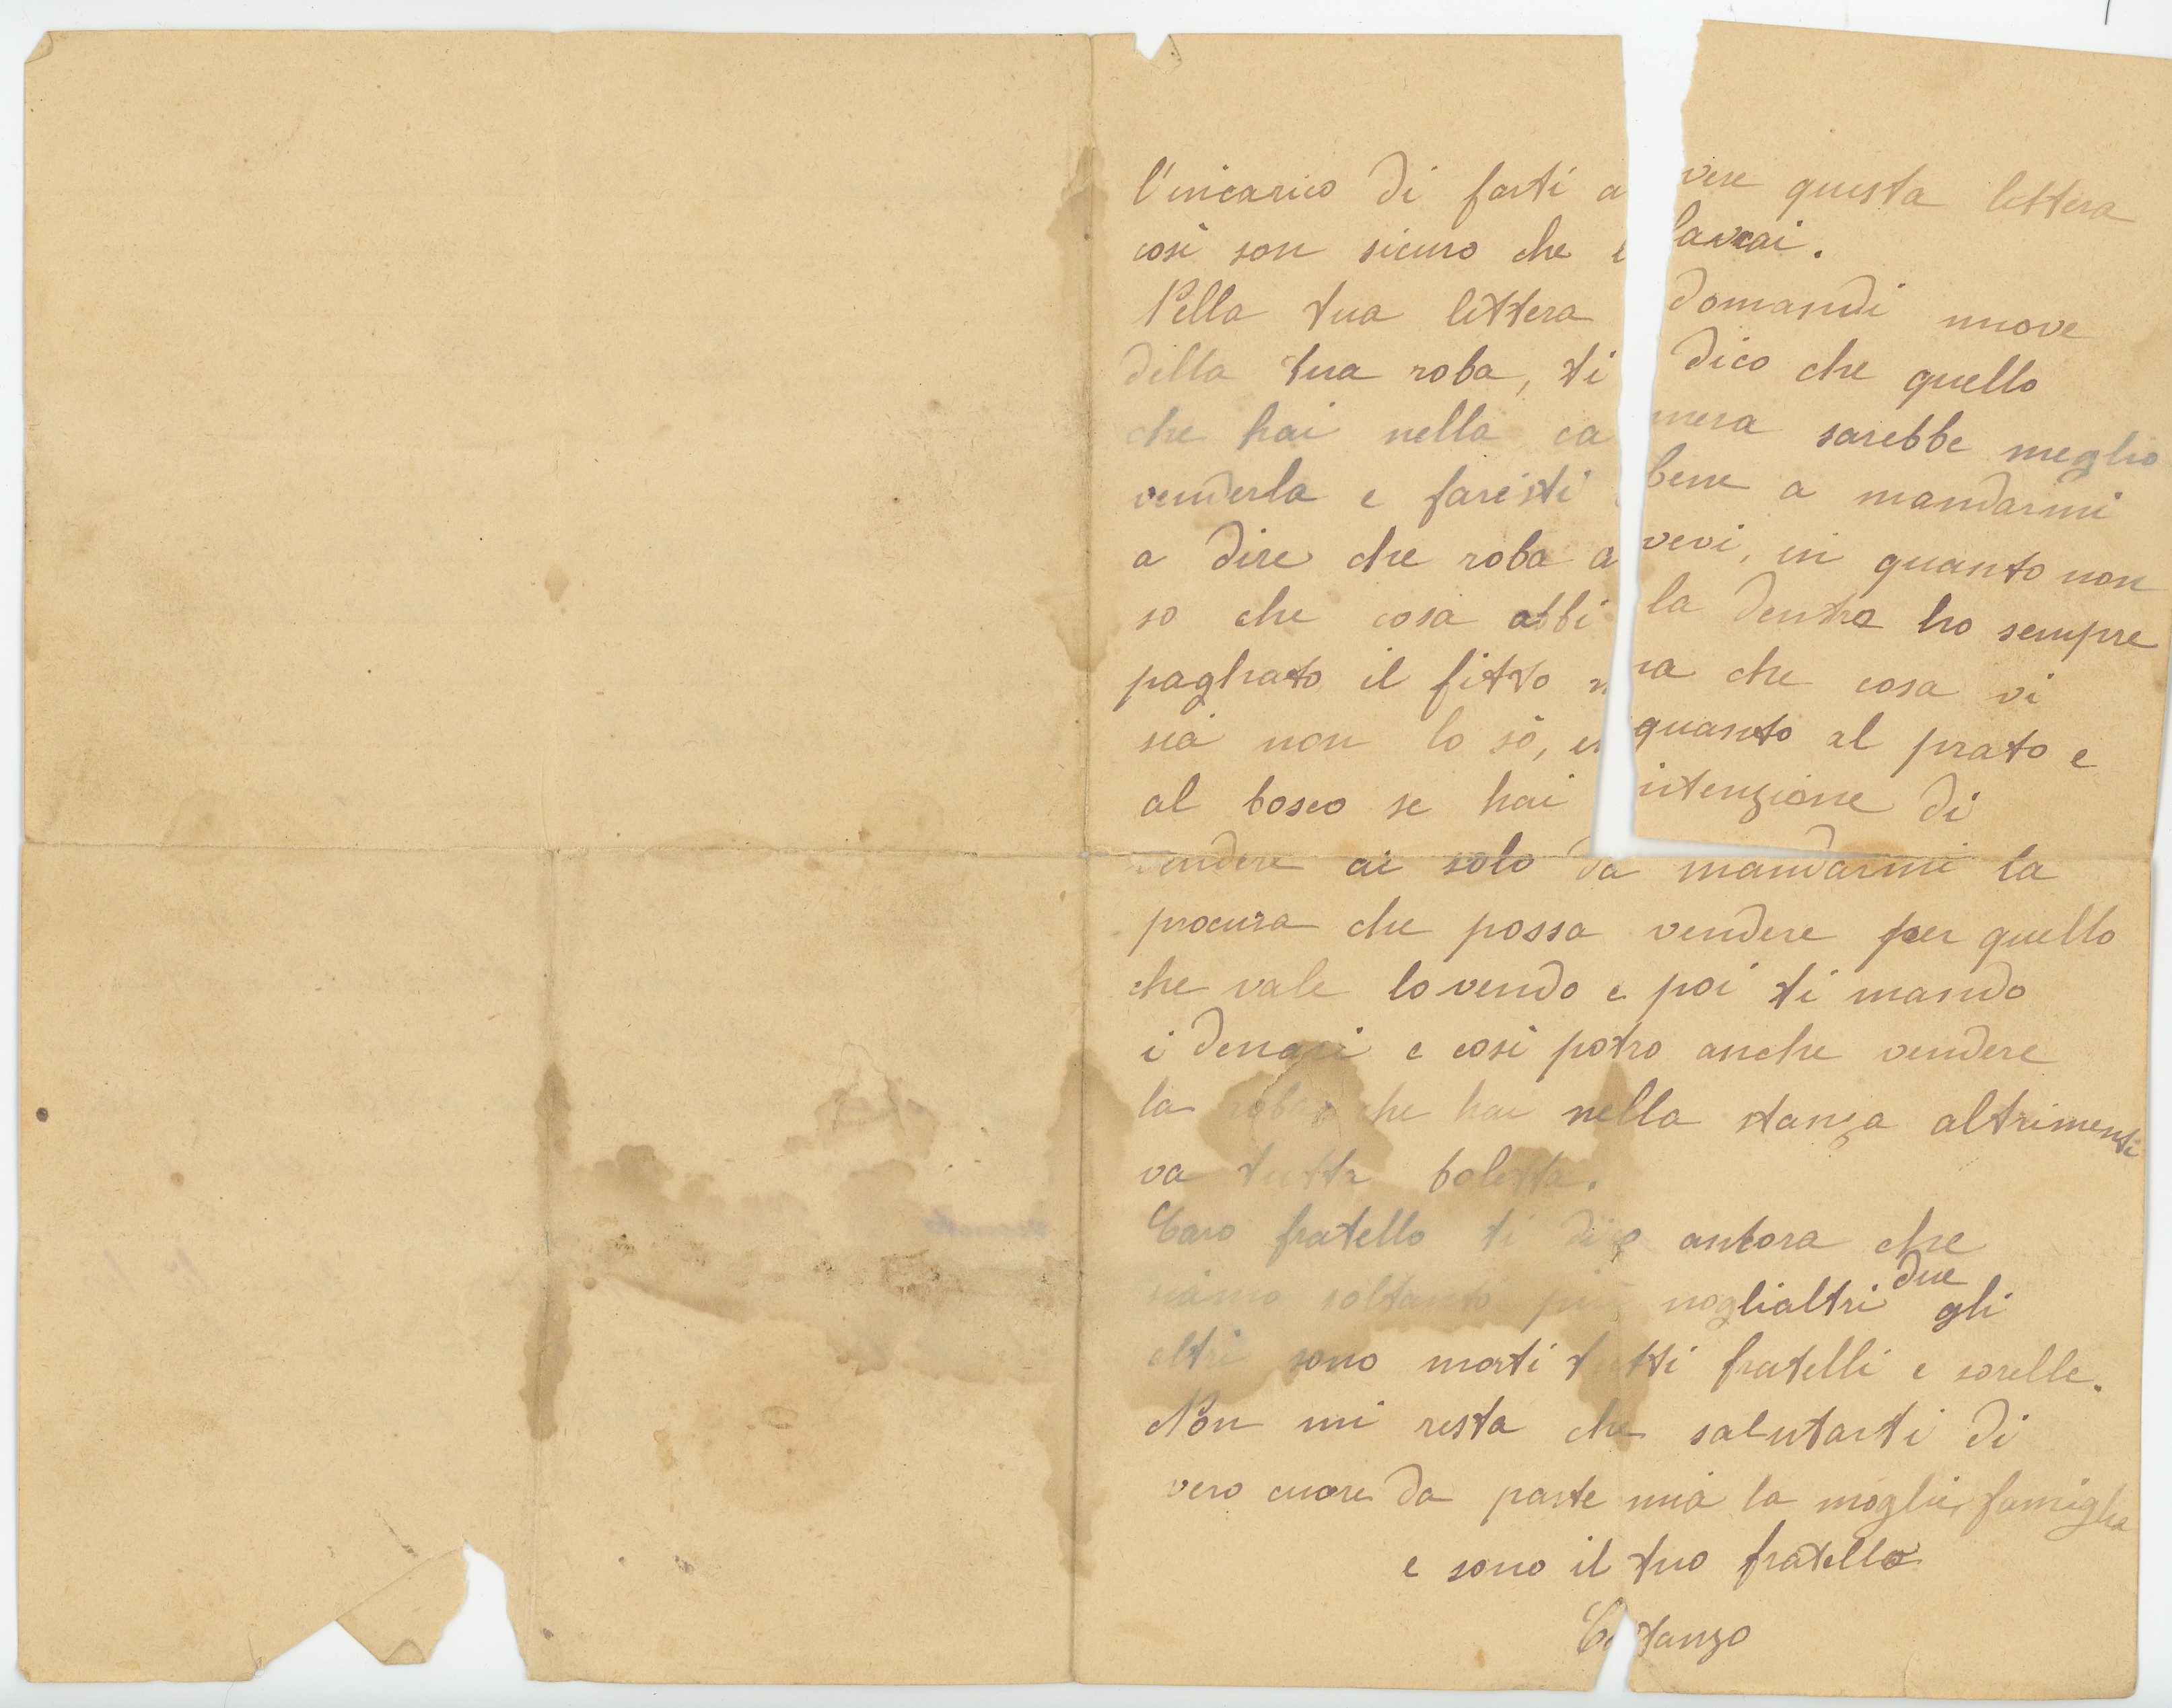 l'incarico di farti avere questa lettera
così son sicuro che lavrai.
Nella tua lettera domandi nuove
della tua roba, ti dico che quello
che hai nella camera sarebbe meglio
venderla e faresti bene a mandarmi
a dire che roba avevi, in quanto non
so che cosa abbi la dentro ho sempre
paghato il fitto ma che cosa vi
sia non lo sò, in quanto al prato e
al bosco se hai intenzione di
vendere ai solo da mandarmi la
procura che possa vendere per quello
che vale lo vendo e poi ti mando
i denari e cosi potro anche vendere
la roba che hai nella stanza altrimenti
va tutta boletta.
Caro fratello ti dico ancora che
siamo soltanto più noglialtri due gli
altri sono morti tutti fratelli e sorelle.
Non mi resta che salutarti di
vero cuore da parte mia la moglie, famiglia
e sono il tuo fratello
Costanzo